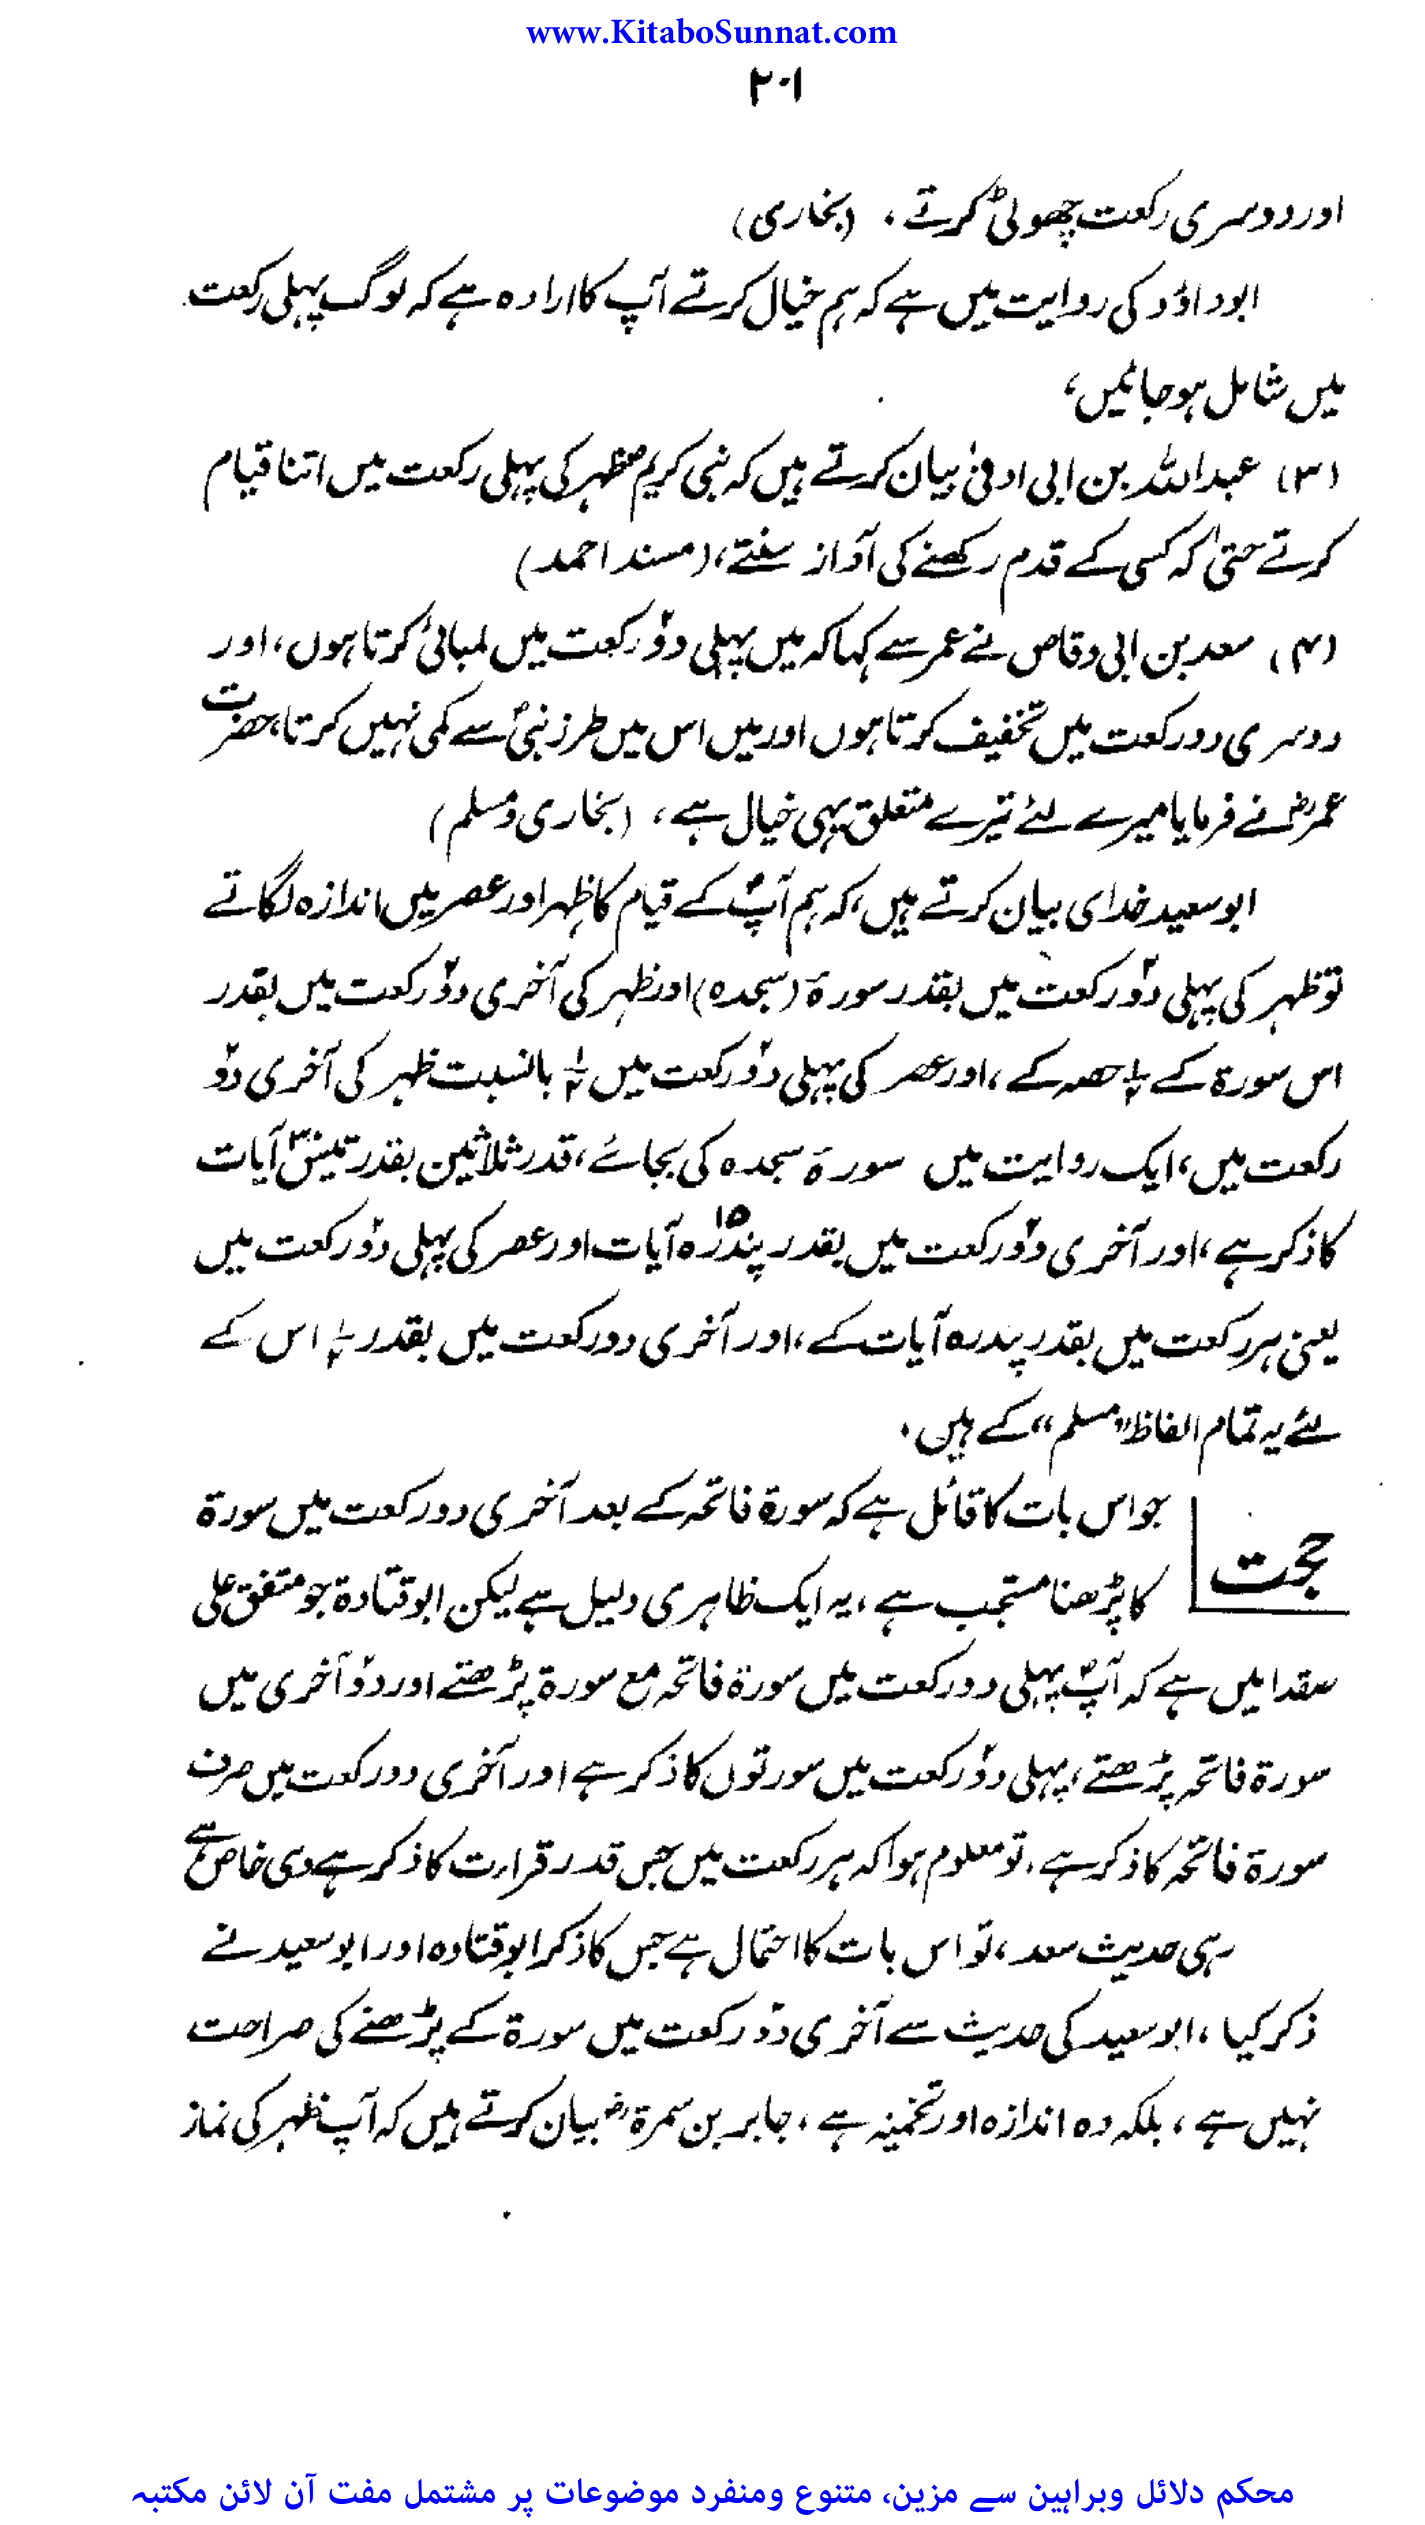 www.KitaboSunnat.com
۲۰۱
اور دوسری رکعت چھوٹی کرتے ، (بخاری)
ابوداؤد کی روایت میں ہے کہ ہم خیال کرتے آپ کا ارادہ ہے کہ لوگ پہلی رکعت
میں شامل ہو جائیں،
(۳) عبد اللہ بن ابی اوفیٰ بیان کرتے ہیں کہ نبی کریم ظہر کی پہلی رکعت میں اتنا قیام
کرتے حتیٰ کہ کسی کے قدم رکھنے کی آواز سنتے، (مسند احمد)
(۴) سعد بن ابی وقاص نے عمر سے کہا کہ میں پہلی دو رکعت میں لمبائی کرتا ہوں، اور
دوسری دو رکعت میں تخفیف کرتا ہوں اور میں اس میں طرز نبیؐ سے کمی نہیں کرتا، حضرت
عمرؓ نے فرمایا میرے لئے تیرے متعلق یہی خیال ہے ، (بخاری و مسلم)
ابو سعید خدای بیان کرتے ہیں، کہ ہم آپؐ کے قیام کا ظہر اور عصر میں اندازہ لگاتے
تو ظہر کی پہلی دو رکعت میں بقدر سورۃ (سجدہ) اور ظہر کی آخری دو رکعت میں بقدر
اس سورۃ کے ½ حصہ کے ، اور عصر کی پہلی دو رکعت میں ½ بالنسبت ظہر کی آخری دو
رکعت میں، ایک روایت میں سورۃ سجدہ کی بجائے، قدر ثلاثین بقدر تیس۳۰ آیات
کا ذکر ہے ، اور آخری دو رکعت میں بقدر پندرہ۱۵ آیات اور عصر کی پہلی دو رکعت میں
یعنی ہر رکعت میں بقدر پندرہ آیات کے ، اور آخری دو رکعت میں بقدر ½ اس کے
لئے یہ تمام الفاظ "مسلم" کے ہیں ۔
حجت
جو اس بات کا قائل ہے کہ سورۃ فاتحہ کے بعد آخری دو رکعت میں سورۃ
کا پڑھنا مستحب ہے ، یہ ایک ظاہری دلیل ہے لیکن ابو قتادۃ جو متفق علی
سقدا میں ہے کہ آپؐ پہلی دو رکعت میں سورۃ فاتحہ مع سورۃ پڑھتے اور دو آخری میں
سورۃ فاتحہ پڑھتے ، پہلی دو رکعت میں سورتوں کا ذکر ہے اور آخری دو رکعت میں صرف
سورۃ فاتحہ کا ذکر ہے ۔ تو معلوم ہوا کہ ہر رکعت میں جس قدر قراءت کا ذکر ہے وہی خاص ہے
رہی حدیث سعد ، تو اس بات کا احتمال ہے جس کا ذکر ابو قتادہ اور ابو سعید نے
ذکر کیا ، ابو سعید کی حدیث سے آخری دو رکعت میں سورۃ کے پڑھنے کی صراحت
نہیں ہے ، بلکہ وہ اندازہ اور تخمینہ ہے ، جابر بن سمرۃؓ بیان کرتے ہیں کہ آپ ظہر کی نماز
محکم دلائل وبراہین سے مزین، متنوع ومنفرد موضوعات پر مشتمل مفت آن لائن مکتبہ